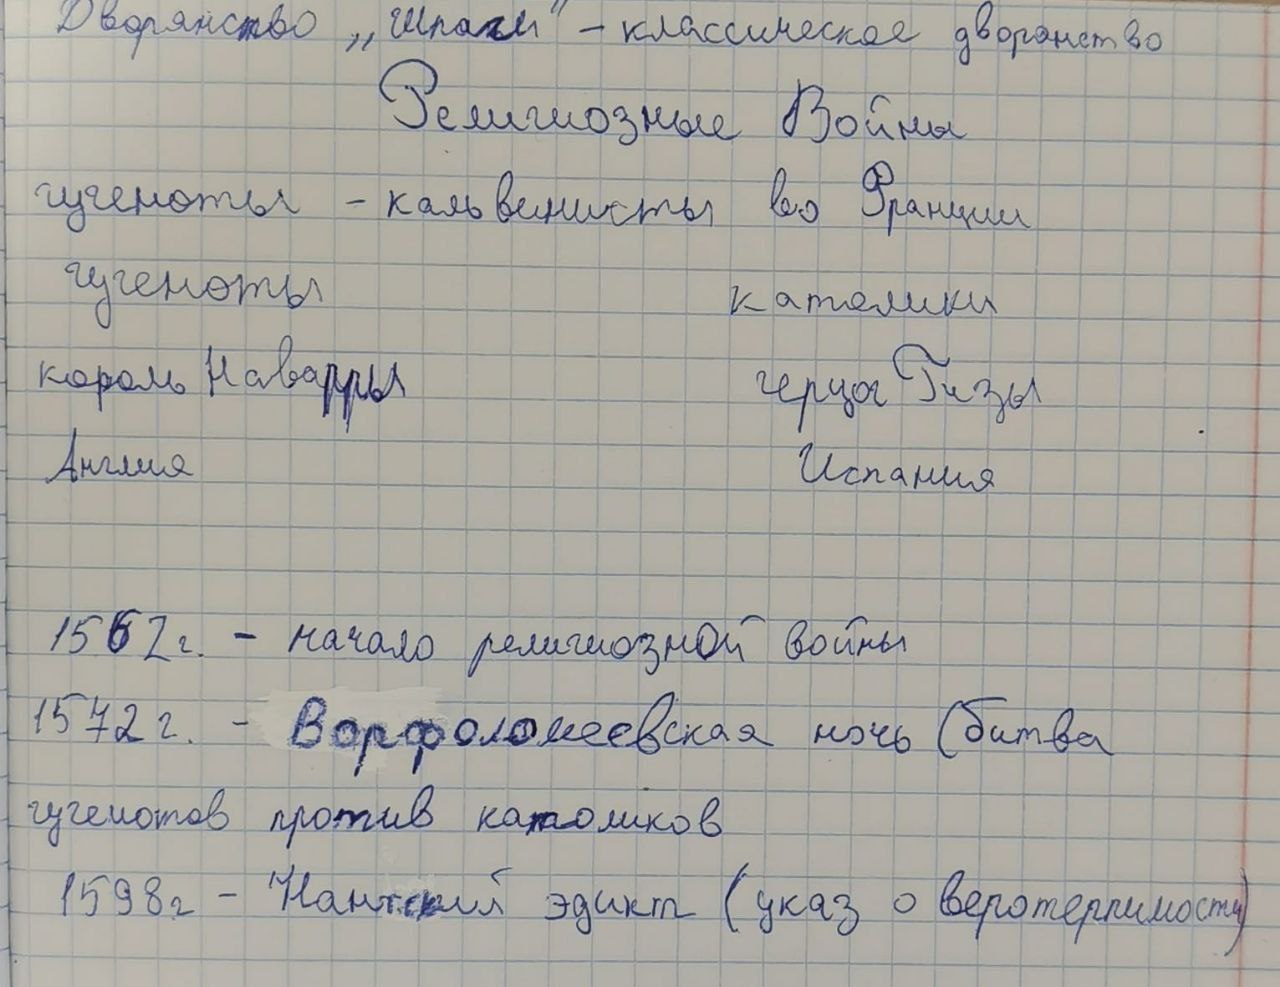 Дворянство „Шпаги” – классическое дворянство
Религиозные Войны
гугеноты – кальвенисты во Франции
гугеноты католики
король Наварры герцог Гизы
Англия Испания
1562 г. – начало религиозной войны
1572 г. – Ворфоломеевская ночь (битва
гугенотов против католиков
1598г – Нантский эдикт (указ о веротерпимости)